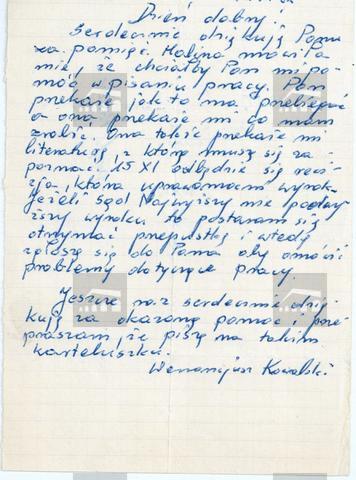 Dzień dobry!
Serdecznie dziękuję Panu
za pamięć. Halyna mówiła
mie, że chciałby Pan mi po
móc w pisaniu pracy. Pan
przekaże jak to ma przebiegać
a ona przekaże mi co mam
zrobić. Ona także przekaże mi
literaturę, z którą muszę się za
poznać. 15 XI odbędzie się rewi
zja, która uprawomocni wyrok.
Jeżeli Sąd Najwyższy nie podwy
ższy wyroku to postaram się
otrzymać przepustkę i wtedy
zgłoszę się do Pana aby omówić
problemy dotyczące pracy.
Jeszcze raz serdecznie dzię
kuję za okazaną pomoc i prze
praszam, że piszę na takim
karteluszku.
Wenancjusz Kowalski